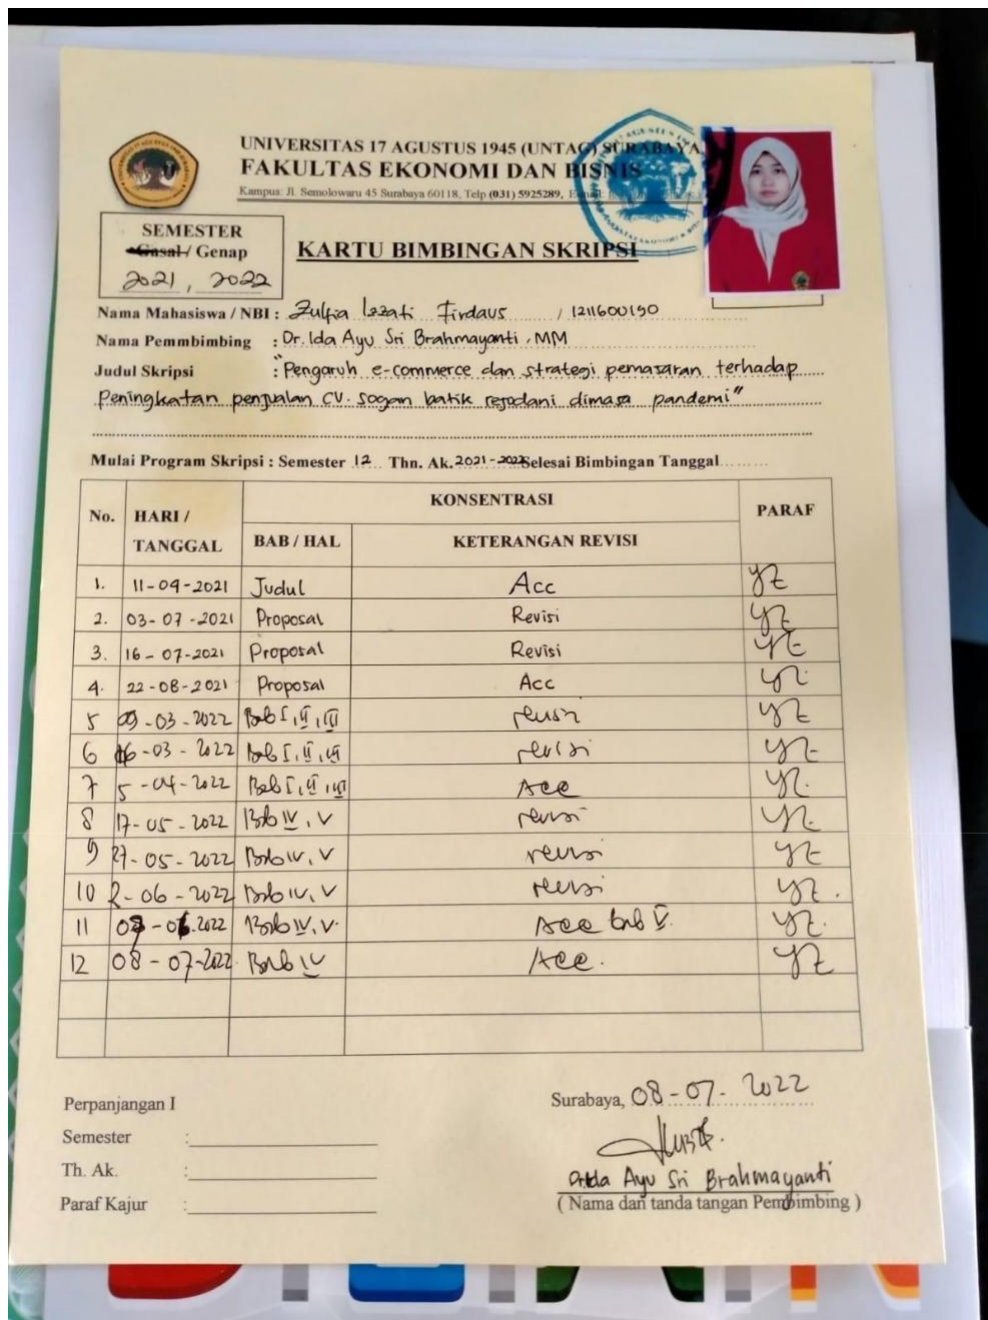 UNIVERSITAS 17 AGUSTUS 1945 (UNTAG) SURABAYA
FAKULTAS EKONOMI DAN BISNIS
Kampus: Jl. Semolowaru 45 Surabaya 60118, Telp (031) 5925289,
SEMESTER
Gasal / Genap
2021, 2022
KARTU BIMBINGAN SKRIPSI
Nama Mahasiswa / NBI : Zulfia Izzati Firdaus / 1211600190
Nama Pemmbimbing : Dr. Ida Ayu Sri Brahmayanti, MM
Judul Skripsi : "Pengaruh e-commerce dan strategi pemasaran terhadap
Peningkatan penjualan CV. sogan batik rejodani dimasa pandemi"
Mulai Program Skripsi : Semester 12 Thn. Ak. 2021-2022 Selesai Bimbingan Tanggal
No. HARI / TANGGAL KONSENTRASI PARAF
BAB / HAL KETERANGAN REVISI
1. 11-04-2021 Judul Acc
2. 03-07-2021 Proposal Revisi
3. 16-07-2021 Proposal Revisi
4. 22-08-2021 Proposal Acc
5 -03-2022 Bab I, II, III revisi
6 -03-2022 Bab I, II, III revisi
7 5-04-2022 Bab I, II, III Acc
8 17-05-2022 Bab IV, V revisi
9 27-05-2022 Bab IV, V revisi
10 2-06-2022 Bab IV, V revisi
11 Bab IV, V. Acc bab V.
12 08-07-2022 Bab IV Acc.
Perpanjangan I
Semester :
Th. Ak. :
Paraf Kajur :
Surabaya, 08-07-2022
Dr. Ida Ayu Sri Brahmayanti
( Nama dan tanda tangan Pembimbing )